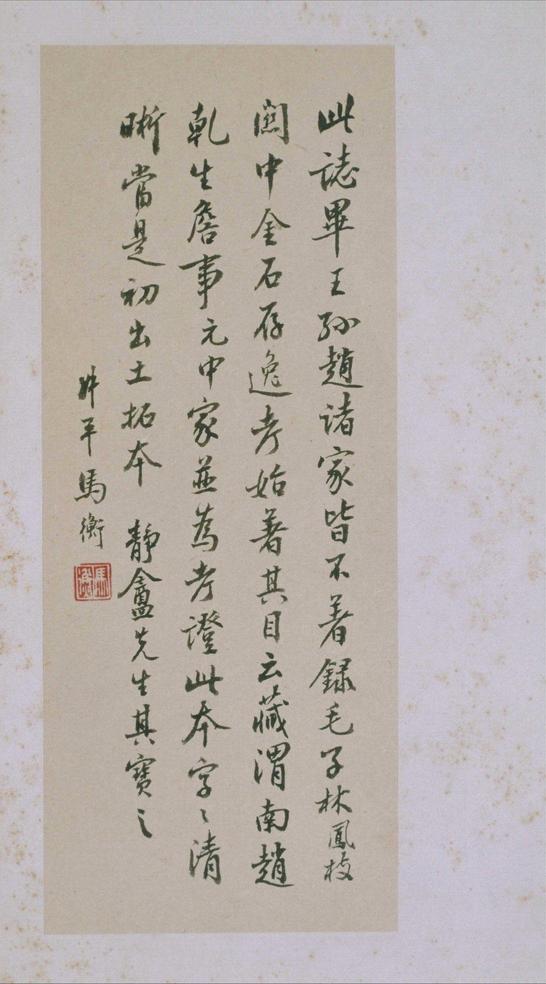 此誌畢王孫趙諸家皆不著録毛子林鳳枝
關中金石存逸考始著其目云藏渭南趙
乾生詹事元中家並為考證此本字〻清
晰當是初出土拓本 靜盦先生其寶之
叔平馬衡